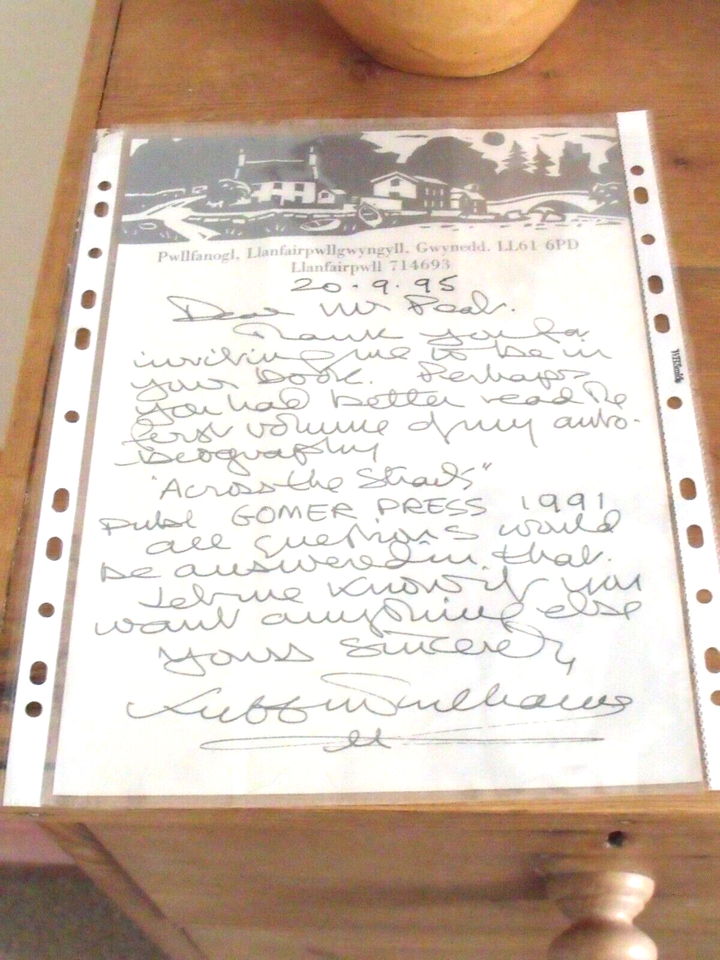 Pwllfanogl, Llanfairpwllgwyngyll, Gwynedd. LL61 6PD
Llanfairpwll 714693
20.9.95
Dear Mr Peak.
Thank you for
inviting me to be in
your book. Perhaps
you had better read the
first volume of my auto-
biography
"Across the Straits"
Publ GOMER PRESS 1991
all questions would
be answered in that.
Let me know if you
want anything else
Yours Sincerely,
Kyffin Williams
WHSmith